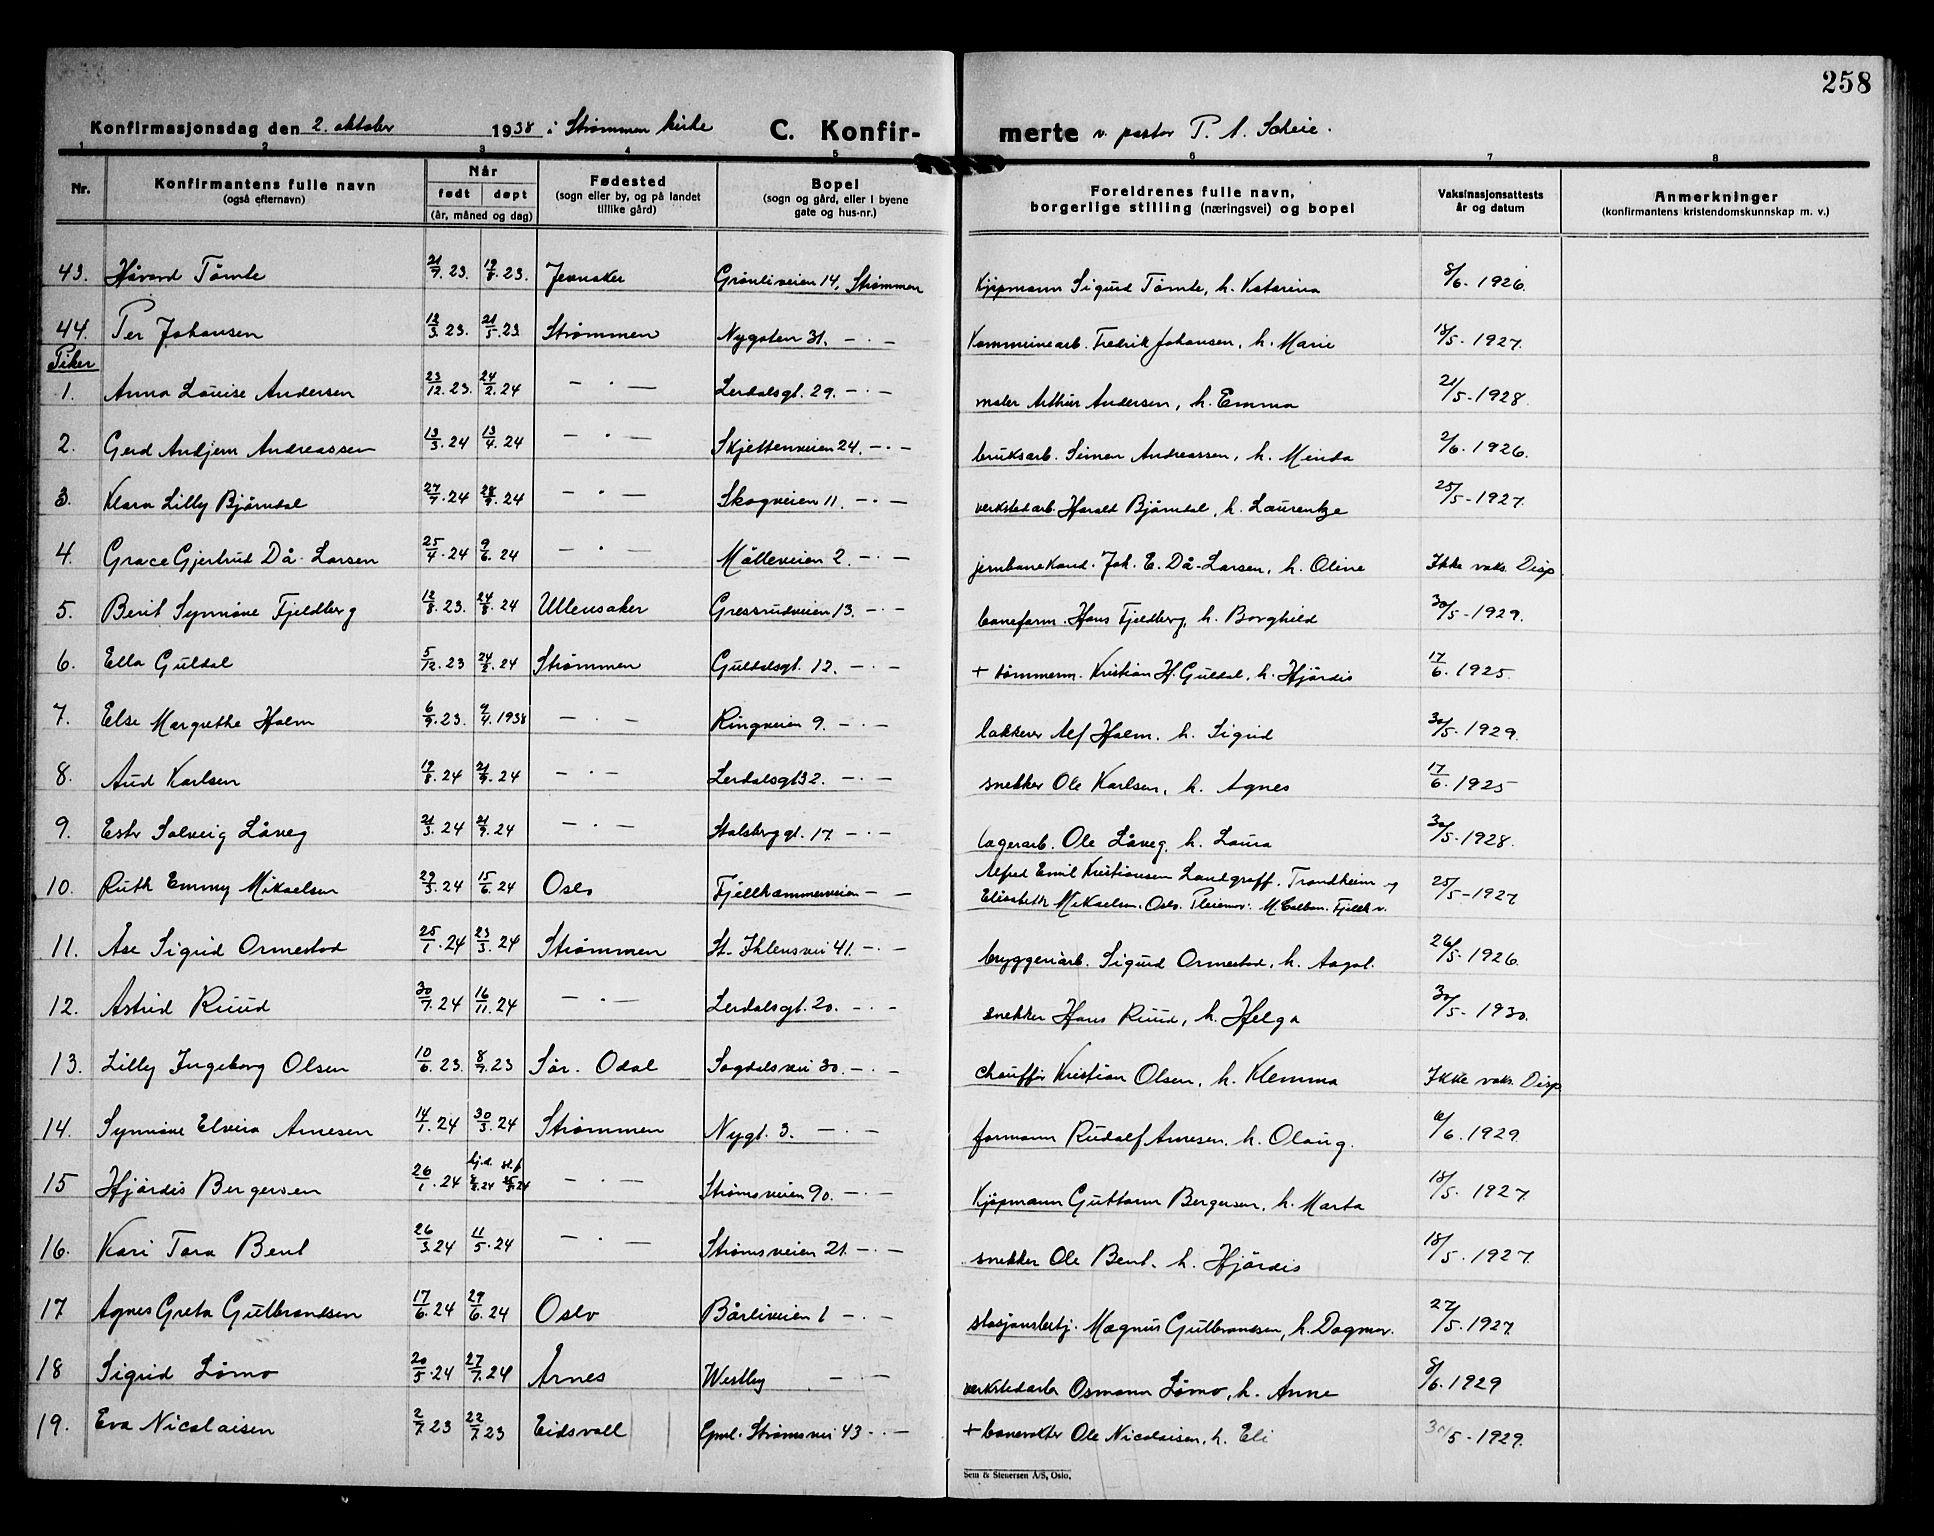 258
Konfirmasjonsdag den 2. oktober 1938 i Strømmen kirke C. Konfirmerte v. pastor P. A. Scheie.
1 2 3 4 5 6 7 8
Nr. Konfirmantens fulle navn (også efternavn) Når født døpt (år, måned og dag) Fødested (sogn eller by, og på landet tillike gård) Bopel (sogn og gård, eller i byene gate og hus-nr.) Foreldrenes fulle navn, borgerlige stilling (næringsvei) og bopel Vaksinasjonsattests år og datum Anmerkninger (konfirmantens kristendomskunnskap m. v.)
43. Håvard Tømte 21/7. 23. 19/8. 23. Jevnaker Grønliveien 14, Strømmen Kjøpmann Sigurd Tømte, h. Katarina 8/6. 1926.
44. Per Johansen 12/3. 23. 21/5. 23. Strømmen Nygaten 31. — · — Kommunearb. Fredrik Johansen, h. Marie 18/5 - 1927.
Piker
1. Anna Louise Andersen 23/12. 23. 24/2. 24 — · — Lerdalsgt. 29. — · — maler Arthur Andersen, h. Emma 21/5 - 1928.
2. Gerd Andjem Andreassen 13/3. 24 13/4. 24 — · — Skjettenveien 24. — · — bruksarb. Simon Andreassen, h. Minda 2/6. 1926.
3. Klara Lilly Bjørndal 27/7. 24 28/9. 24 — · — Skogveien 11. — · — verkstedarb. Harald Bjørndal, h. Laurentze 25/5 - 1927.
4. Grace Gjertrud Då-Larsen 25/4. 24 9/6. 24 — · — Mölleveien 2. — · — jernbanekond. Joh. E. Då-Larsen, h. Oline Ikke vaks. Disp.
5. Berit Synnøve Fjeldberg 12/8. 23. 24/8. 24 Ullensaker Gressrudveien 13. — · — baneform. Hans Fjeldberg, h. Borghild 30/5 - 1929.
6. Ella Guldal 5/12. 23 24/2. 24 Strømmen Guldalsgt. 12. — · — + tømmerm. Kristian H. Guldal, h. Hjørdis 17/6. 1925.
7. Else Margrethe Holm 6/9. 23. 9/4. 1938 — · — Ringveien 9. — · — lakkerer Alf Holm. h. Sigrid 30/5 - 1929.
8. Aud Karlsen 19/8. 24 21/9. 24 — · — Lerdalsgt 32. — · — snekker Ole Karlsen, h. Agnes 17/6. 1925
9. Ester Solveig Låveg 21/3. 24 21/9. 24 — · — Stalsberggt. 17. — · — lagerarb. Ole Låveg, h. Laura 30/5 - 1928.
10. Ruth Emmy Mikaelsen 29/3. 24 15/6. 24 Oslo Fjellhammerveien — — Alfred Emil Kristiansen Landgraff, Trondheim og
Elisabeth Mikaelsen. Oslo. Pleiemor: 25/5 - 1927
11. Åse Sigrid Ormestad 25/1. 24 23/3. 24 Strømmen St. Ihlensvei 41. — · — bryggeriarb. Sigurd Ormestad, h. Aagot. 26/5 - 1926.
12. Astrid Ruud 30/7. 24 16/11. 24 — · — Lerdalsgt. 20. — · — snekker Hans Ruud, h. Helga 30/5 - 1930.
13. Lilly Ingeborg Olsen 10/6. 23. 8/7. 23 Sør-Odal Sagdalsvei 30. — · — chauffør Kristian Olsen, h. Klemma Ikke vaks. Disp
14. Synnøve Elvira Arnesen 14/1. 24 30/3. 24 Strømmen Nygt. 3. — · — formann Rudolf Arnesen, h. Olaug. 6/6. 1929.
15 Hjørdis Bergersen 26/1. 24 hj.d. st.f — · — Strømsveien 90. — · — Kjøpmann Guttorm Bergersen, h. Marta 18/5. 1927.
16. Kari Tora Bent 26/3. 24 11/5. 24 — · — Strømsveien 21. — · — snekker Ole Bent. h. Hjørdis 18/5. 1927.
17 Agnes Greta Gulbrandsen 17/6. 24 29/6. 24 Oslo Bårliveien 1 — · — stasjonsbetj. Magnus Gulbrandsen, h. Dagmar. 27/5. 1927.
18 Sigrid Lømo 20/5. 24 27/7. 24 Årnes Westby — · — verkstedarb Osmann Lømo, h. Anne 8/6. 1929
19. Eva Nicolaisen 2/7. 23 22/7. 23 Eidsvoll Gml. Strømsvei 43 — · — + banevokter Ole Nicolaisen, h. Eli 30/5 - 1929.
Sem & Stenersen A/S, Oslo.